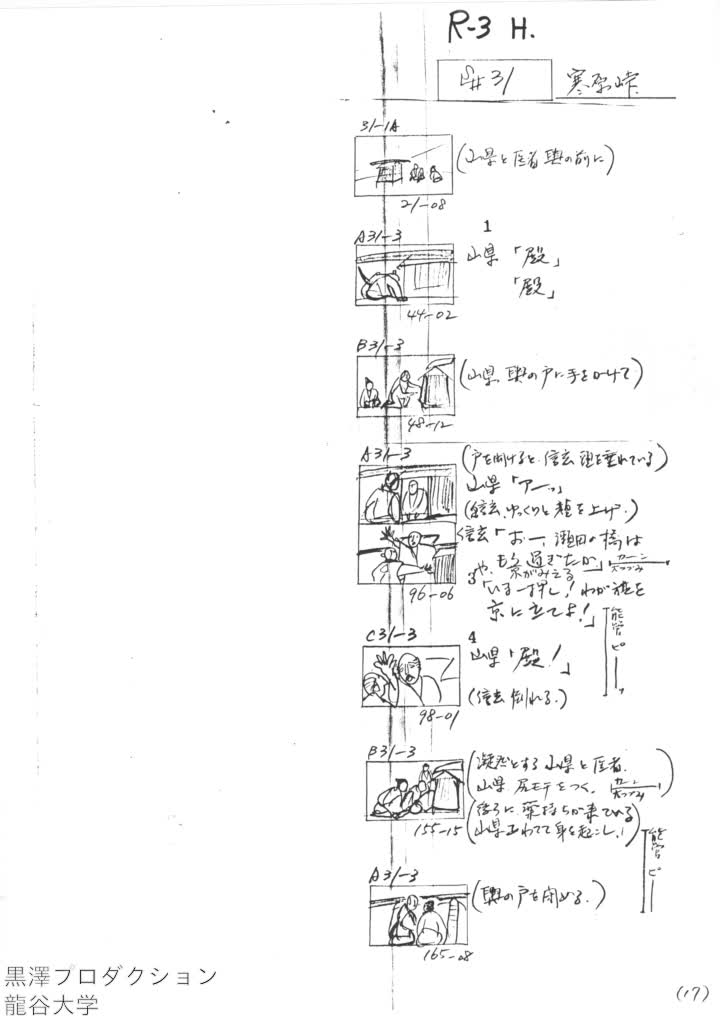 R-3 H.
S#31 寒原峠
31-1A
(山県と医者 輿の前に)
21-08
A31-3
1
山県「殿」
「殿」
44-02
B31-3
(山県、輿の戸に手をかけて)
48-12
A31-3
(戸を開けると、信玄 頭を垂れている)
山県「アーッ」
(信玄、ゆっくりと頭を上げ、)
信玄「おー、瀬田の橋は
もう過ぎたか」
や、京がみえる
カーン
大つづみ
3
「いま一押し! わが旗を
京に立てよ!」
96-06
能管 ピーーッ
C31-3
4
山県「殿!」
(信玄 倒れる。)
98-01
B31-3
(凝然とする山県と医者、
山県 尻モチをつく。
カーン
大つづみ
後ろに 薬持ちが来ている
山県あわてて身を起こし、)
155-15
能管 ピーー
A31-3
(輿の戸を閉める。)
165-08
黒澤プロダクション
龍谷大学
(17)